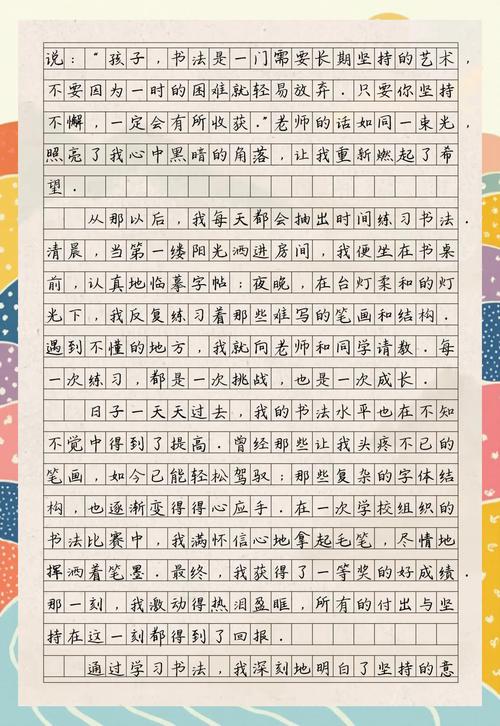 说："孩子,书法是一门需要长期坚持的艺术,
不要因为一时的困难就轻易放弃.只要你坚持
不懈,一定会有所收获."老师的话如同一束光,
照亮了我心中黑暗的角落,让我重新燃起了希
望.
从那以后,我每天都会抽出时间练习书法.
清晨,当第一缕阳光洒进房间,我便坐在书桌
前,认真地临摹字帖;夜晚,在台灯柔和的灯
光下,我反复练习着那些难写的笔画和结构.
遇到不懂的地方,我就向老师和同学请教.每
一次练习,都是一次挑战,也是一次成长.
日子一天天过去,我的书法水平也在不知
不觉中得到了提高.曾经那些让我头疼不已的
笔画,如今已能轻松驾驭;那些复杂的字体结
构,也逐渐变得得心应手.在一次学校组织的
书法比赛中,我满怀信心地拿起毛笔,尽情地
挥洒着笔墨.最终,我获得了一等奖的好成绩.
那一刻,我激动得热泪盈眶,所有的付出与坚
持在这一刻都得到了回报.
通过学习书法,我深刻地明白了坚持的意